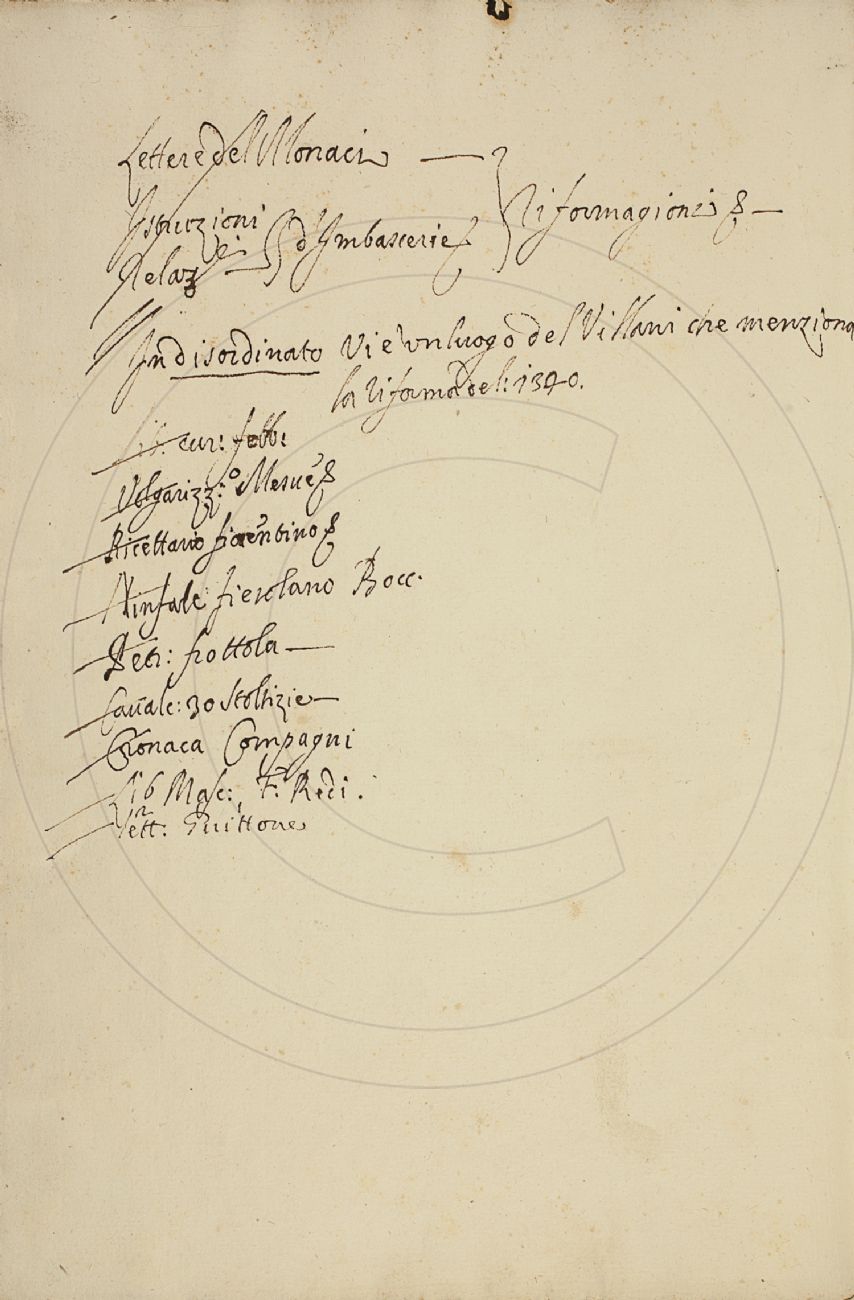 Lettere del Monaci — } Riformagioni —
Istruzioni
Relazni } d'Imbascerie
In disordinato Vi è un luogo del Villani che menziona
la riforma del: 1340.
Lib: cur: febb:
Volgarizz:o Mesue
Ricettario fiorentino
Ninfale fiesolano Bocc.
Petr: frottola —
Cavalc: 30 stoltizie —
Cronaca Compagni
Lib Masc: F. Redi.
Lett: Guittone